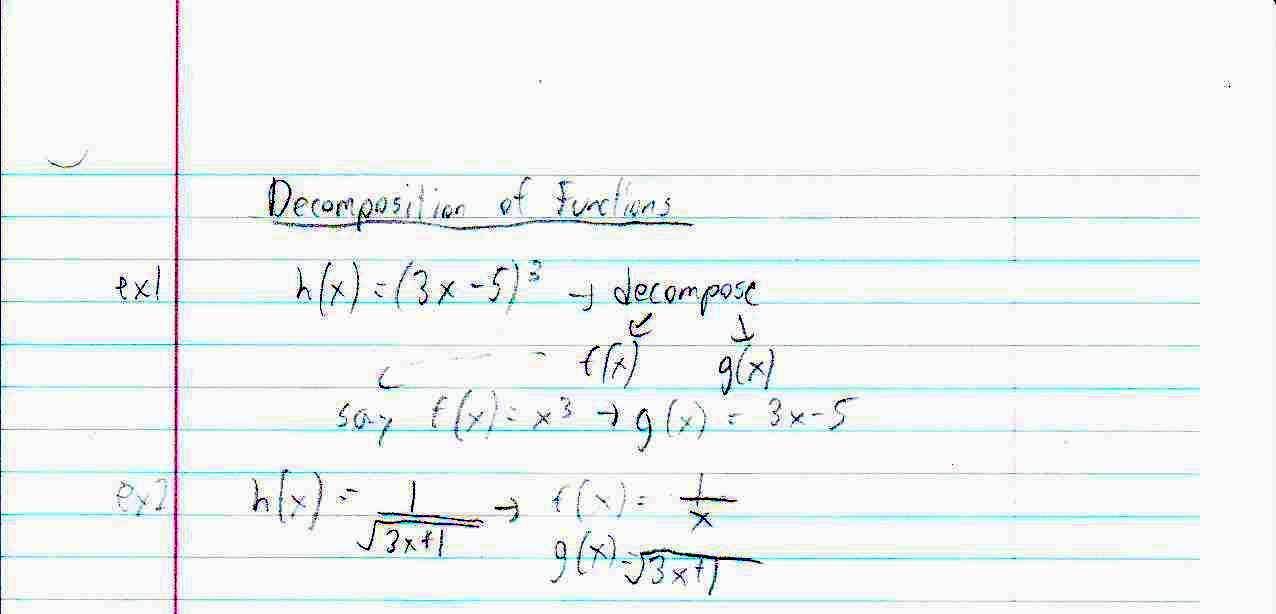 Decomposition of Functions
ex1 h(x) = (3x-5)³ → decompose
f(x) g(x)
say f(x) = x³ → g(x) = 3x-5
ex2 h(x) = 1/√(3x+1) → f(x) = 1/x
g(x) = √(3x+1)